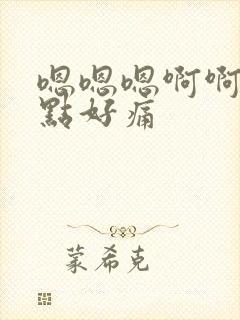 嗯嗯嗯啊啊
點好痛
蒙希克